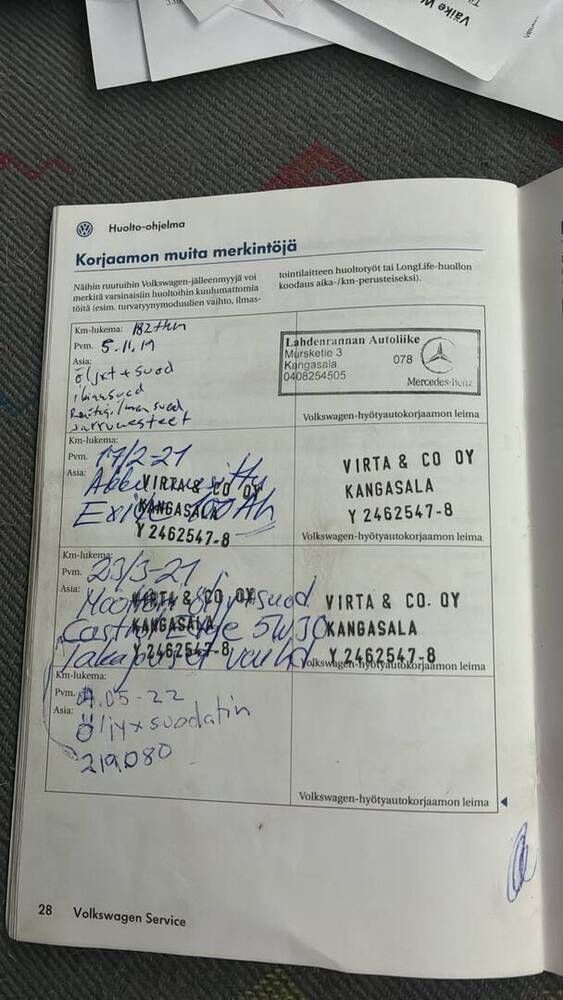 Väike
Huolto-ohjelma
Korjaamon muita merkintöjä
Näihin ruutuihin Volkswagen-jälleenmyyjä voi
merkitä varsinaisiin huoltoihin kuulumattomia
töitä (esim. turvatyynymoduulien vaihto, ilmas-
tointilaitteen huoltotyöt tai LongLife-huollon
koodaus aika-/km-perusteiseksi).
Km-lukema: 182tkm
Pvm. 5.11.19
Asia:
öljyt + suod
suod
suod
jarrunesteet
Lahdenrannan Autoliike
Mursketie 3
Kangasala 078
0408254505
Mercedes-Benz
Volkswagen-hyötyautokorjaamon leima
Km-lukema:
Pvm. 17/2-21
Asia:
Exide 100Ah
VIRTA & CO OY
KANGASALA
Y 2462547-8
VIRTA & CO OY
KANGASALA
Y 2462547-8
Volkswagen-hyötyautokorjaamon leima
Km-lukema:
Pvm. 23/3-21
Asia: Moottori öljy+suod
Castrol Edge 5W30
Takajouset vaihd
VIRTA & CO. OY
KANGASALA
Y 2462547-8
VIRTA & CO. OY
KANGASALA
Y 2462547-8
Volkswagen-hyötyautokorjaamon leima
Km-lukema:
Pvm. .05-22
Asia: öljyxsuodatin
219080
Volkswagen-hyötyautokorjaamon leima
28 Volkswagen Service